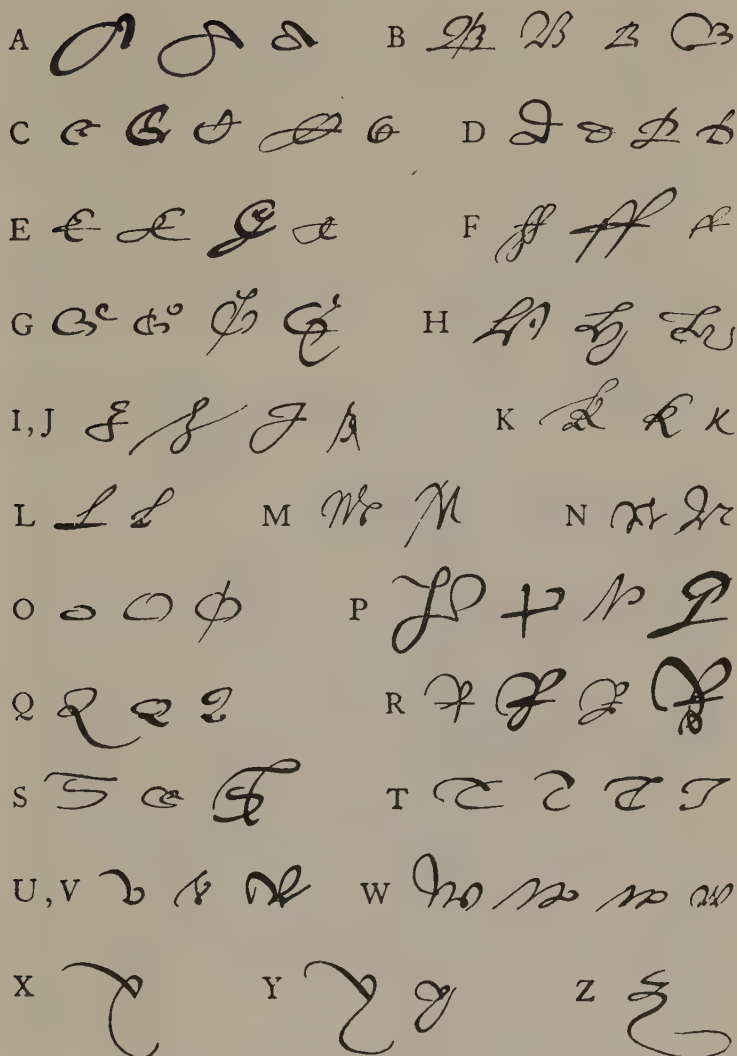 A B
C D
E F
G H
I, J K
L M N
O P
Q R
S T
U, V W
X Y Z